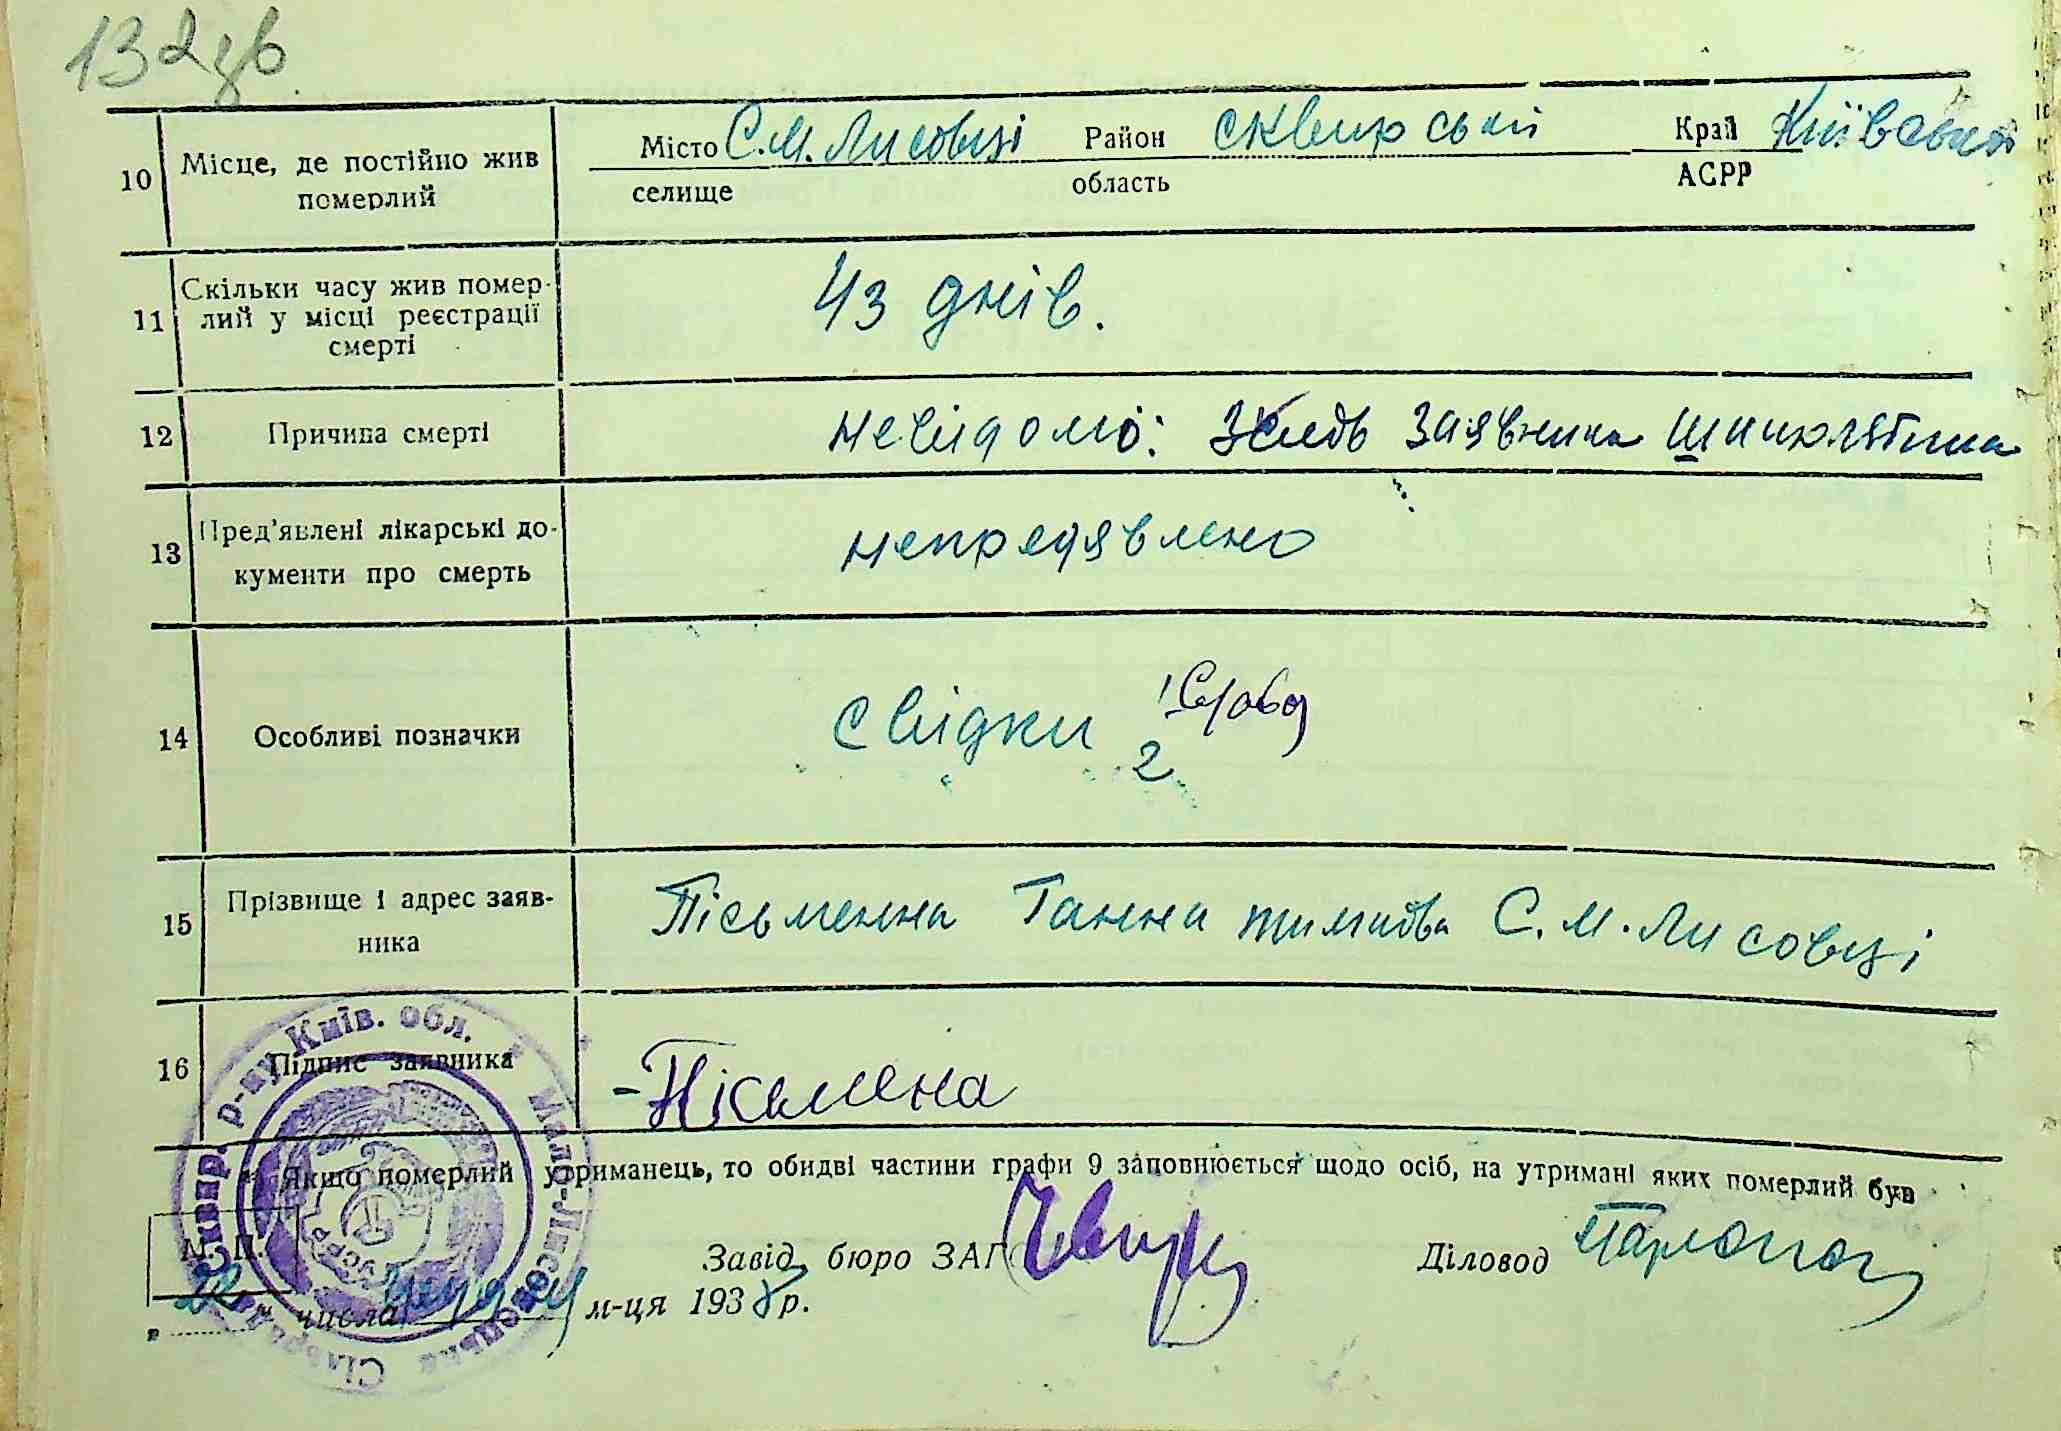 132зв
10 Місце, де постійно жив померлий Місто С.М. Лисовці Район сквирський Край Київська
селище область АСРР
11 Скільки часу жив помер-
лий у місці реєстрації
смерті
43 днів.
12 Причина смерті невідомо: заявника
13 Пред'явлені лікарські до-
кументи про смерть
непредявлено
14 Особливі позначки свідки 1
2
15 Прізвище і адрес заяв-
ника
Пісьменна Ганна С. М. Лисовці
16 Підпис заявника - Пісьмена
Якщо померлий утриманець, то обидві частини графи 9 заповнюється щодо осіб, на утримані яких померлий був
М. П. Завід. бюро ЗАГС Діловод
22 числа м-ця 1938 р.
Сквир. р-ну Київ. обл. Мало-Лисовецька Сільрада
УСРР